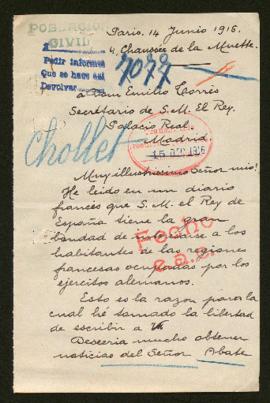 POBLACION
CIVIL
Pedir informe
Que se hace así
Devolver
7077
Chollet
Paris. 14 Junio 1916.
4, Chaussée de la Muette.
à Don Emilio Torrès
Secretário de S.M. El Rey.
Palacio Real.
Madrid.
15 1916
Muy illustrissimo Señor mio!
He leido en un diario
francés que S.M. el Rey de
España tiene la gran
bondad de
a los
habitante de las regiones
francesas ocupadas por los
ejercitos alemanos.
Fecho
Esto es la razon para la
cual hé tomado la libertad
de escribir a V
Desearia mucho obtener
noticias del Señor Abate